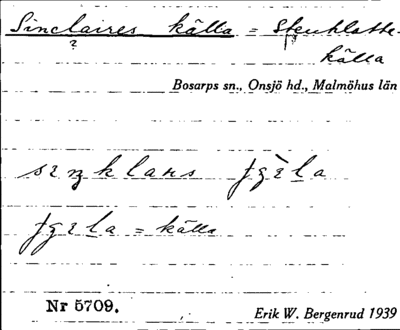 Sinclaires källa = Stenklatte-
?
källa
Bosarps sn., Onsjö hd., Malmöhus län
källa
Nr 5709.
Erik W. Bergenrud 1939